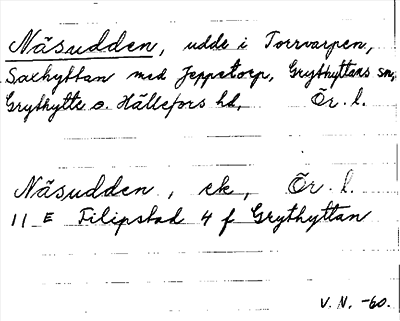 Näsudden, udde i Torrvarpen,
Saxhyttan med Jeppetorp, Grythyttans sn,
Grythytte o. Hällefors hd, Ör. l.
Näsudden, ek, Ör. l.
11 E Filipstad 4 f Grythyttan
V. N. -60.